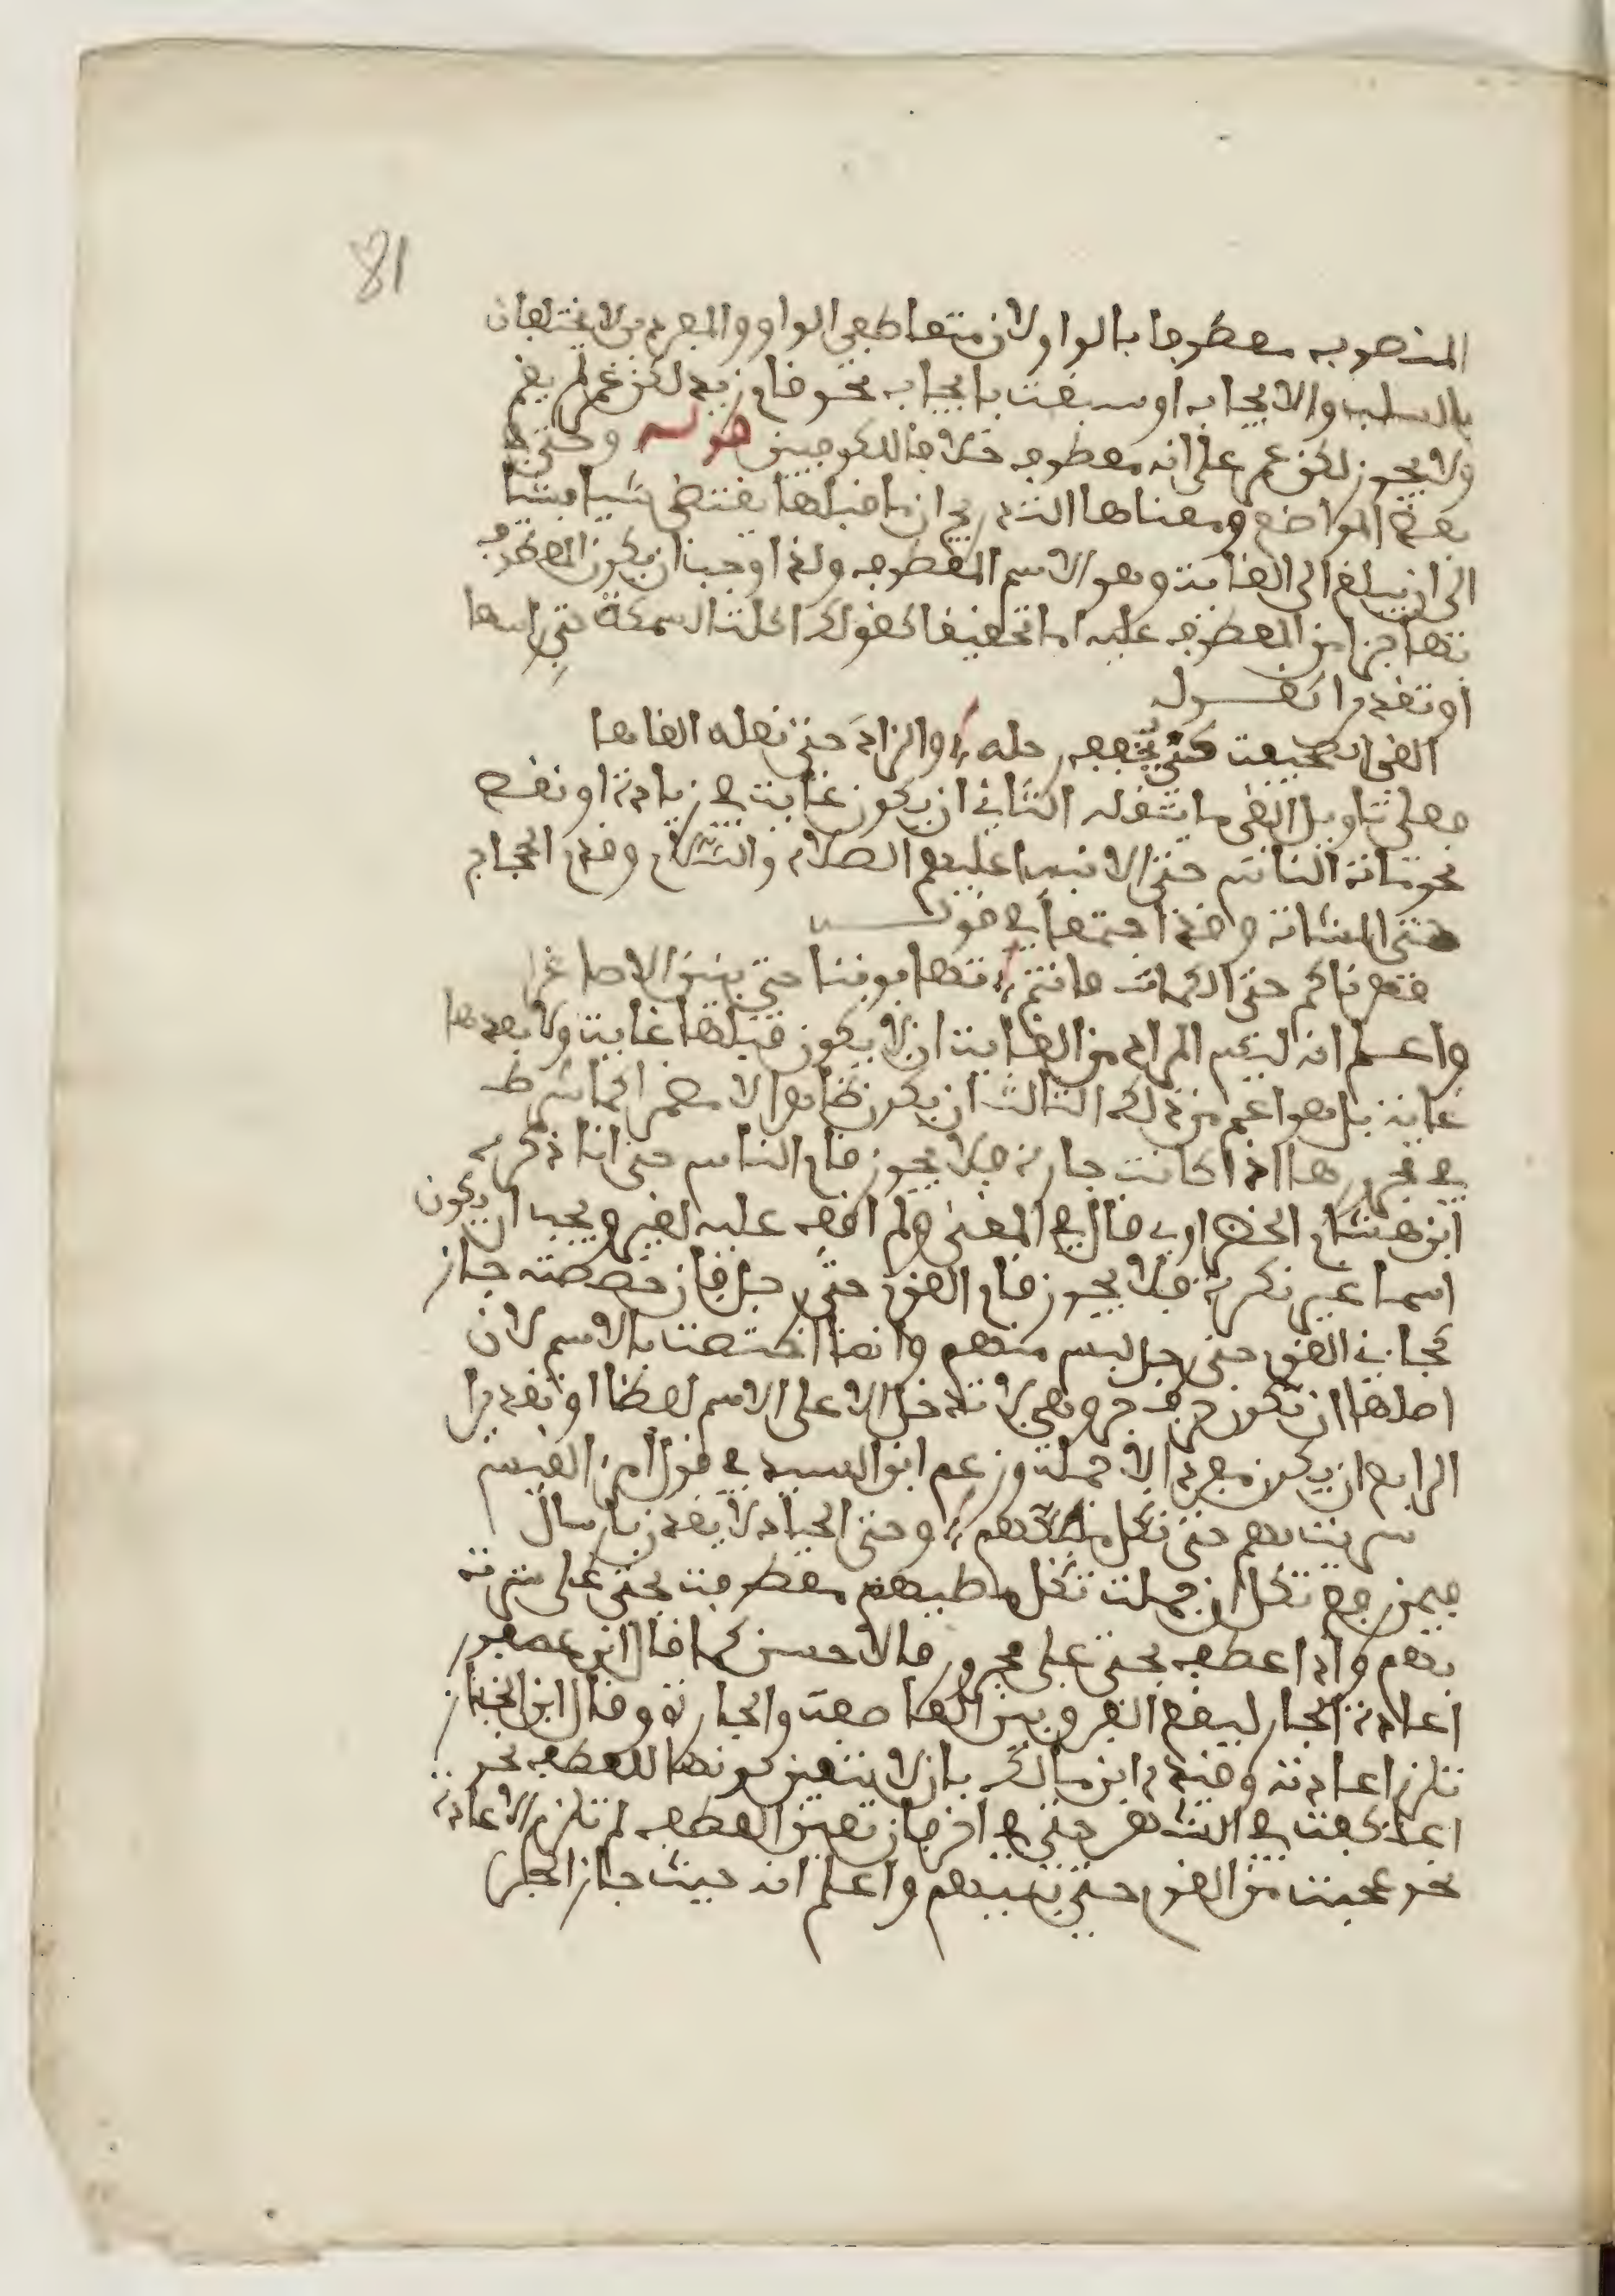 81
المنصوب معطوفا بالواو لان متعاطفي الواو والمفردين لا يختلفان
بالسلب والايجاب او سبقت بايجاب نحو قام زيد لكن عمر لم يقم
ولا يجوز لكن عمر على انه معطوف خلافا للكوفيين قوله وحتى في
بعض المواضع ومعناها التدريج ان ما قبلها يقتضي شيئا فشيئا
الى ان يبلغ الى الغاية وهو الاسم المعطوف ولذا وجب ان يكون المعطوف
بها جزا من المعطوف عليه اما تحقيقا كقولك اكلت السمكة حتى راسها
او تقديرا كقوله
القى الصحيفة كي يخفف رحله والزاد حتى نعله القاها
فعلى تاويل القى ما يثقله الثاني ان يكون غاية في زيادة او نقص
نحو مات الناس حتى الانبياء عليهم الصلاة والسلام وقدم الحجاج
حتى المشاة وقد اجتمعا في قوله
قهرناكم حتى الكماة فانتم تهابوننا حتى بنينا الاصاغرا
واعلم انه ليس المراد من الغاية ان لا يكون قبلها غاية ولا بعدها
غاية بل هو اعم من ذلك الثالث ان يكون ظاهرا لا مضمرا كما شرط
في مجرورها اذا كانت جارة فلا يجوز قام الناس حتى انا ذكره
ابن هشام الخضراوي قال في المغنى ولم اقف عليه لغيره ويجب ان يكون
اسما غير نكرة فلا يجوز قام القوم حتى رجل فان خصصته جاز
كجاءني القوم حتى رجل ليس منهم وانما اختصت بالاسم لان
اصلها ان تكون حرف جر وهي لا تدخل الا على الاسم لفظا او تقديرا
الرابع ان يكون مفردا لا جملة وزعم ابن السيد في قول امرئ القيس
سريت بهم حتى تكل مطيهم وحتى الجياد لا يقدن بارسان
فيمن رفع تكل ان جملة تكل مطيهم معطوفة بحتى على سريت
بهم واذا عطف بحتى على مجرور فالاحسن كما قال ابن عصفور
اعادة الجار ليقع الفرق بين العاطفة والجارة وقال ابن الخباز
تلزم اعادته وقيده ابن مالك بان لا يتعين كونها للعطف نحو
اعتكفت في الشهر حتى في اخره فان تعين العطف لم تلزم الاعادة
نحو عجبت من القوم حتى بنيهم واعلم انه حيث جاز الجر